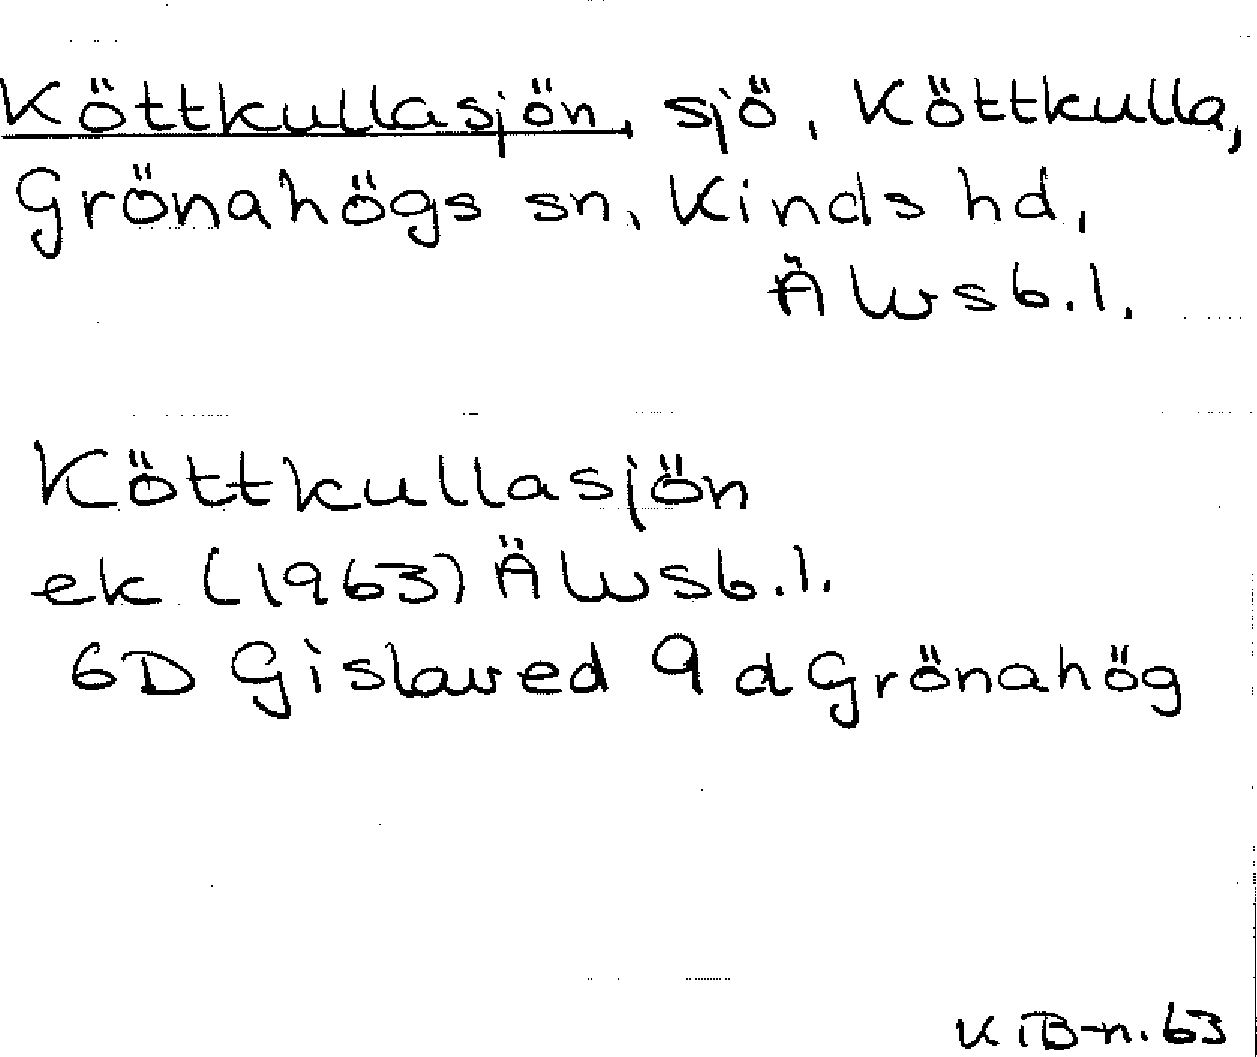 Köttkullasjön, sjö, Köttkulla,
Grönahögs sn, Kinds hd,
Älvsb.l.
Köttkullasjön
ek (1963) Älvsb.l.
6D Gislaved 9d Grönahög
K iB-n. 63